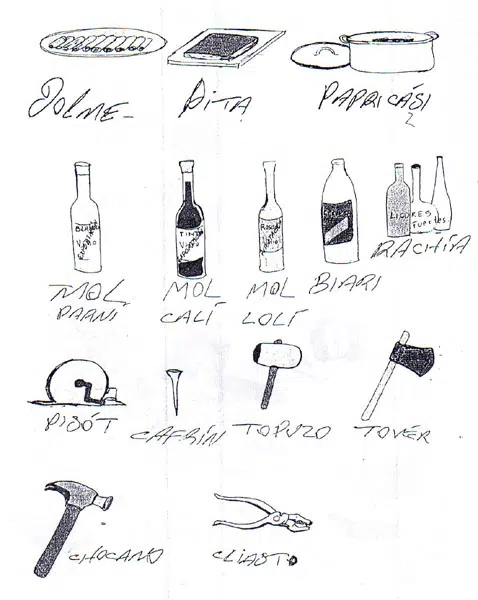 DOLME-
PITA
PAPRICÁSI
2
BLANCO
VINO
TINTO
VINO
ROSADO
VINO
LICORES
FUERTES
MOL
PARNI
MOL
CALÍ
MOL
LOLÍ
BIARI
RACHÍA
PISÓT
CAFRÍN
TOPUZO
TOVÉR
CHOCANO
CLIASTO